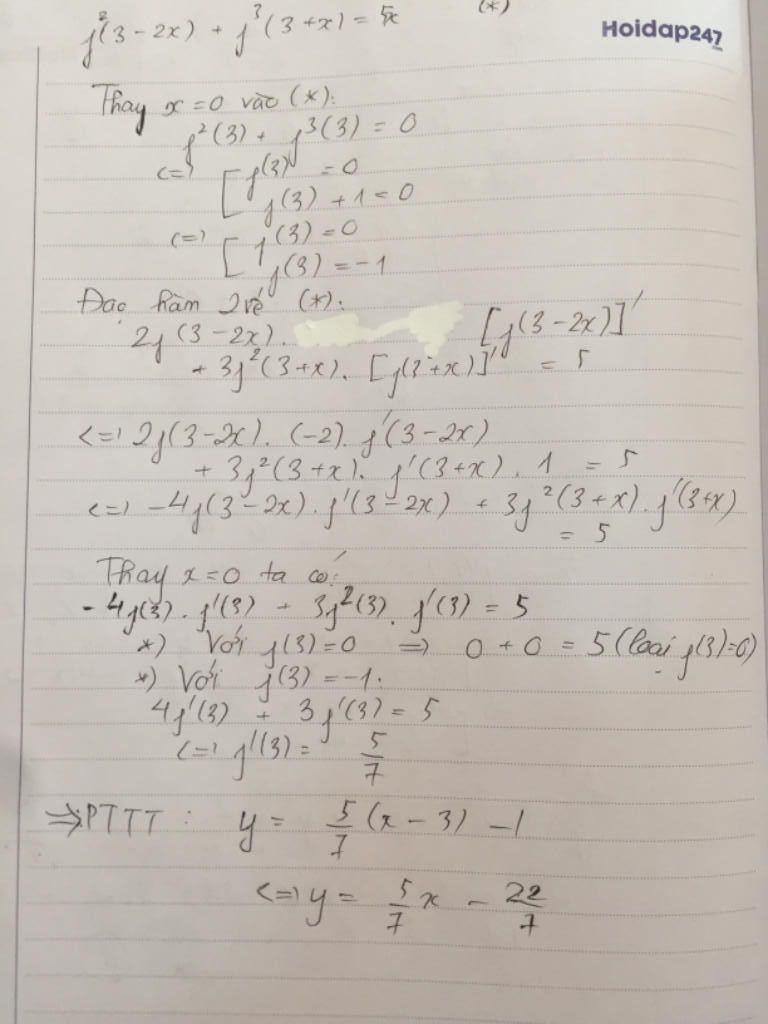 f²(3-2x) + f³(3+x) = 5x (*)
Hoidap247
.com
Thay x=0 vào (*):
f²(3) + f³(3) = 0
<=> [ f(3) = 0
f(3) + 1 = 0
<=> [ f(3) = 0
f(3) = -1
Đạo hàm 2 vế (*):
2f(3-2x). [f(3-2x)]'
+ 3f²(3+x). [f(3+x)]' = 5
<=> 2f(3-2x). (-2). f'(3-2x)
+ 3f²(3+x). f'(3+x). 1 = 5
<=> -4f(3-2x). f'(3-2x) + 3f²(3+x). f'(3+x)
= 5
Thay x=0 ta có:
-4f(3). f'(3) + 3f²(3). f'(3) = 5
*) Với f(3)=0 => 0 + 0 = 5 (loại f(3)=0)
*) Với f(3) = -1:
4f'(3) + 3f'(3) = 5
<=> f'(3) = 5/7
=> PTTT : y = 5/7 (x - 3) - 1
<=> y = 5/7 x - 22/7